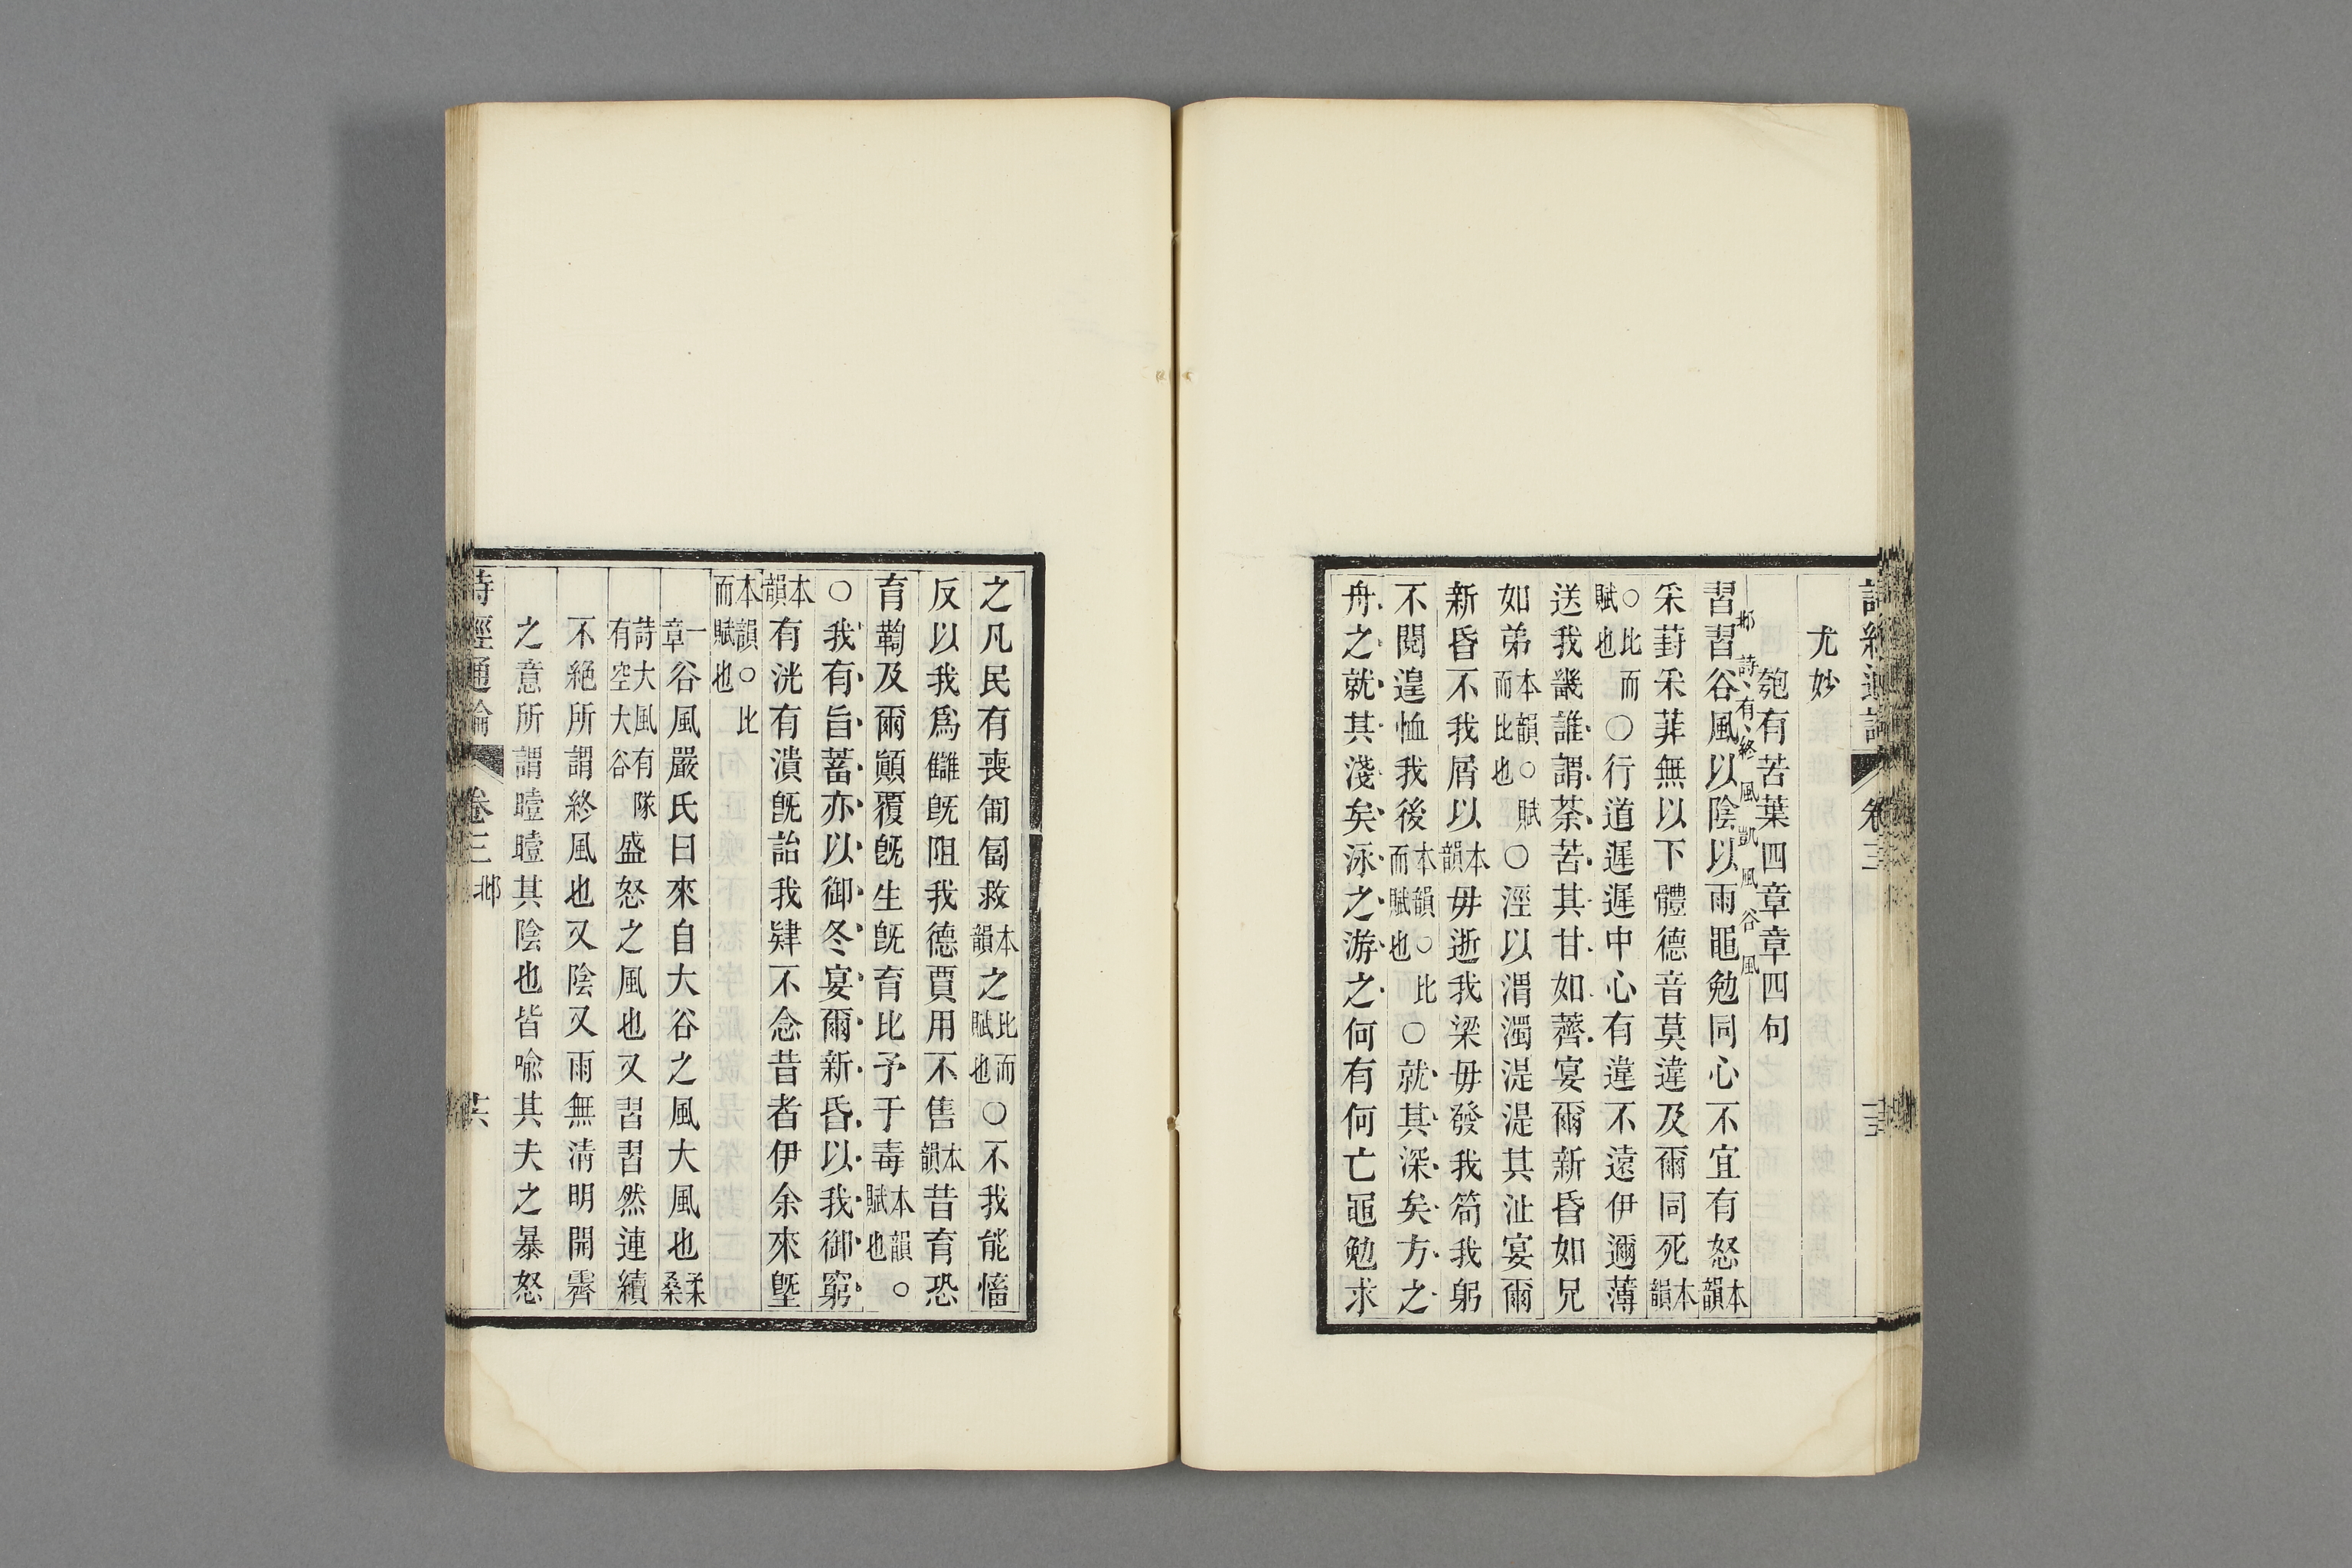 詩經通論 卷三
尤妙
匏有苦葉四章章四句
邶詩有終風凱風谷風
習習谷風以陰以雨黽勉同心不宜有怒本韻
采葑采菲無以下體德音莫違及爾同死本韻
○比而賦也○行道遲遲中心有違不遠伊邇薄
送我畿誰謂荼苦其甘如薺宴爾新昏如兄
如弟本韻○賦而比也○涇以渭濁湜湜其沚宴爾
新昏不我屑以本韻毋逝我梁毋發我笱我躬
不閱遑恤我後本韻○比而賦也○就其深矣方之
舟之就其淺矣泳之游之何有何亡黽勉求
之凡民有喪匍匐救本韻之比而賦也○不我能慉
反以我爲讎旣阻我德賈用不售本韻昔育恐
育鞫及爾顚覆旣生旣育比予于毒本韻○賦也
○我有旨蓄亦以御冬宴爾新昏以我御窮
本韻有洸有潰旣詒我肄不念昔者伊余來墍
本韻○比而賦也
一章谷風嚴氏曰來自大谷之風大風也桑柔
詩大風有隧有空大谷盛怒之風也又習習然連續
不絕所謂終風也又陰又雨無淸明開霽
之意所謂曀曀其陰也皆喻其夫之暴怒
詩經通論 卷三 邶